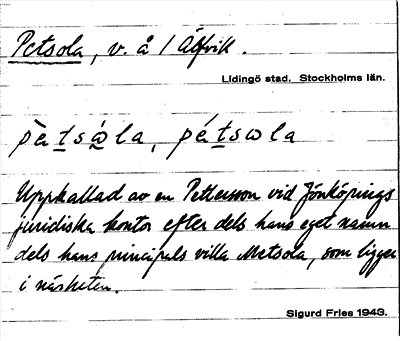 Petsola, v. å / Älfvik.
Lidingö stad. Stockholms län.
pè̀tsὼla, pétsωla
Uppkallad av en Pettersson vid Jönköpings
juridiska kontor efter dels hans eget namn
dels hans principals villa Metsola, som ligger
i närheten.
Sigurd Fries 1943.